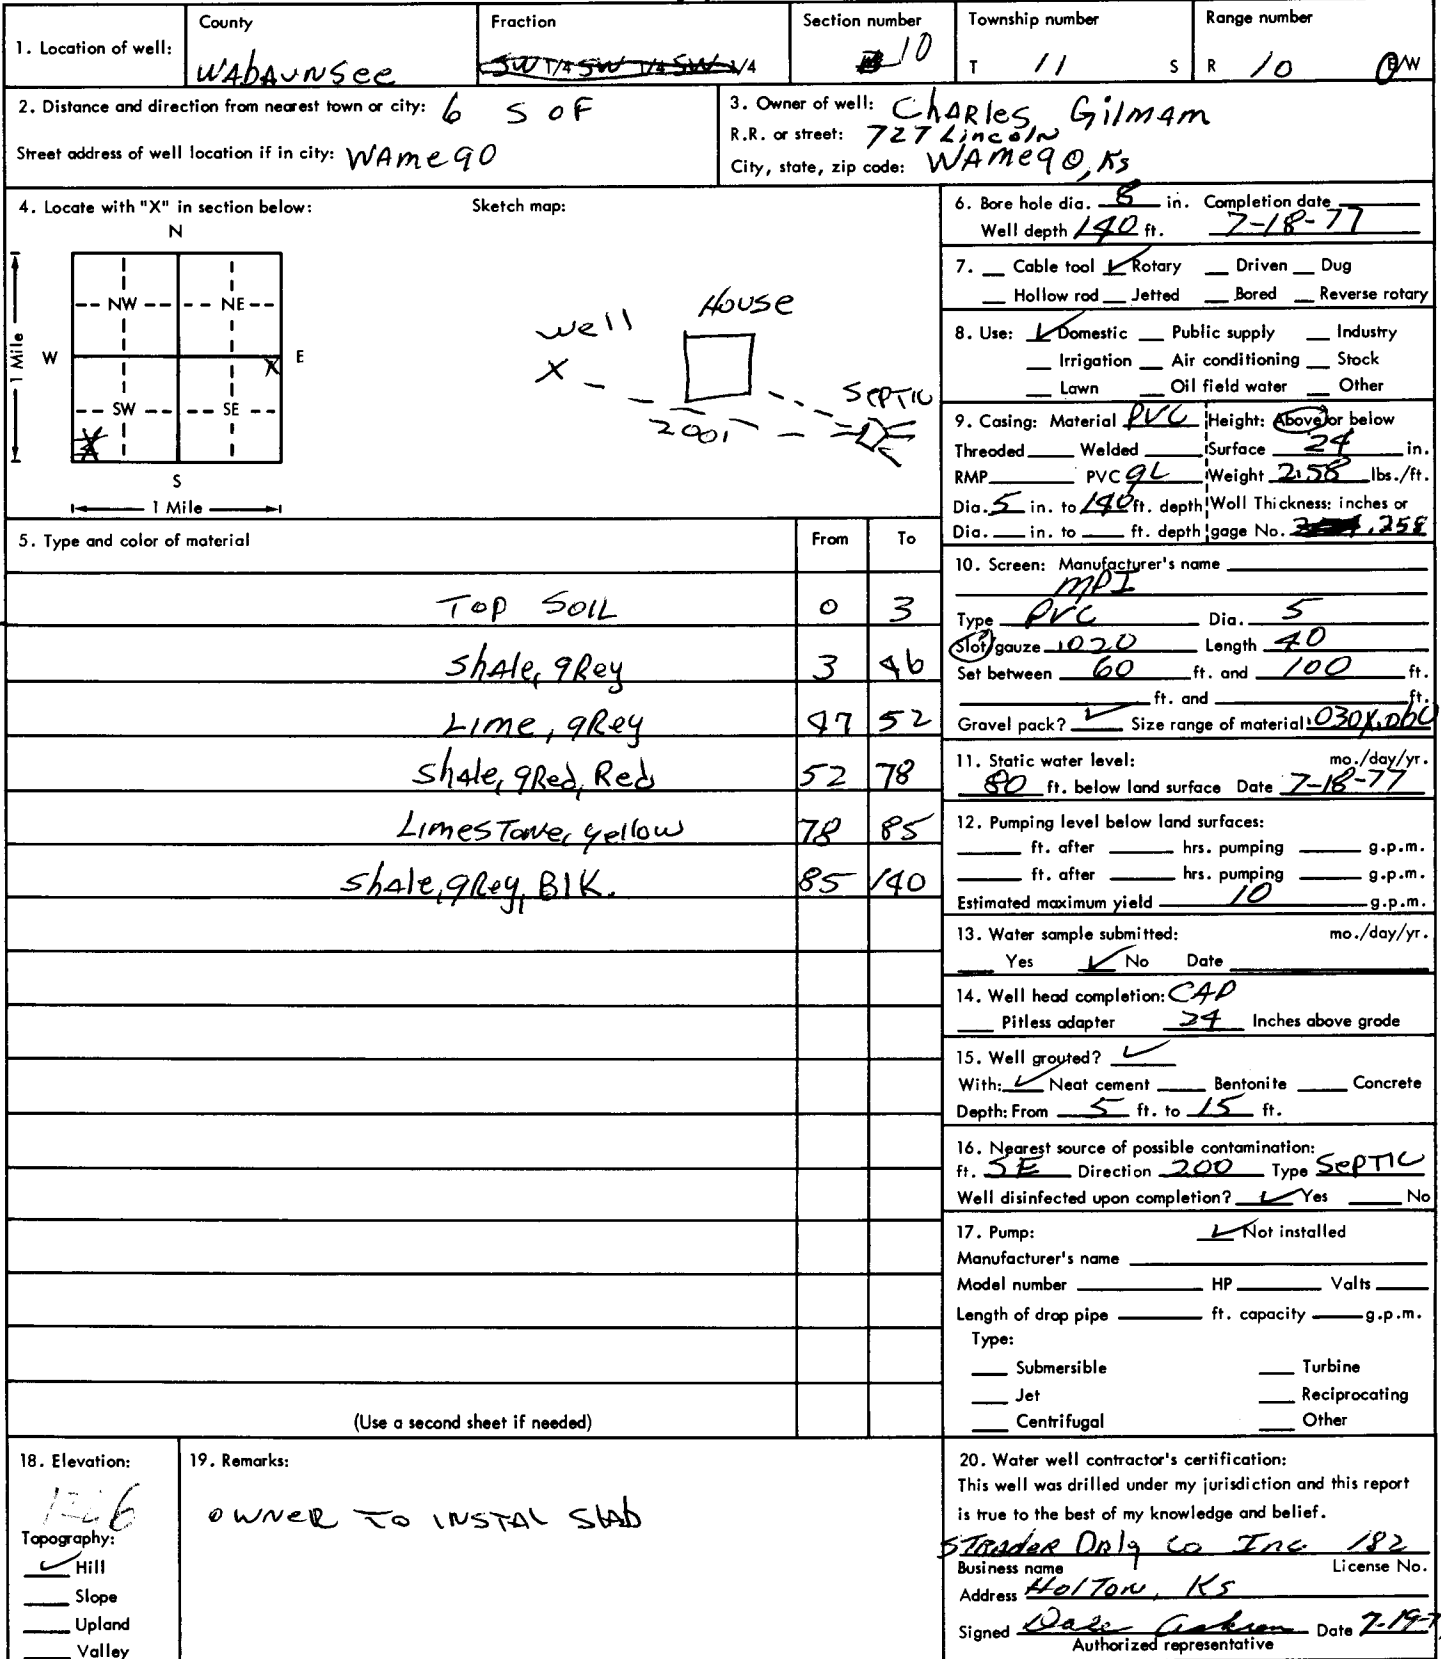 1. Location of well:
County
WAbAUNSee
Fraction
SW 1/4 SW 1/4 SW 1/4
Section number
10
Township number
T 11 S
Range number
R 10 E/W
2. Distance and direction from nearest town or city: 6 S OF
Street address of well location if in city: WAmego
3. Owner of well: ChARles Gilmam
R.R. or street: 727 Lincoln
City, state, zip code: WAmego, Ks
4. Locate with "X" in section below:
Sketch map:
N
NW NE
W E
X
SW SE
X
S
1 Mile
1 Mile
well
X
House
SEPTIC
200'
5. Type and color of material From To
Top SOIL 0 3
Shale, gRey 3 46
Lime, gRey 47 52
Shale, gRed, Red 52 78
LimesTone, yellow 78 85
Shale, gRey, Blk. 85 140
(Use a second sheet if needed)
6. Bore hole dia. 8 in. Completion date
Well depth 140 ft. 7-18-77
7. Cable tool ✓ Rotary Driven Dug
Hollow rod Jetted Bored Reverse rotary
8. Use: ✓ Domestic Public supply Industry
Irrigation Air conditioning Stock
Lawn Oil field water Other
9. Casing: Material PVC Height: Above or below
Threoded Welded Surface 24 in.
RMP PVC gL Weight 2.58 lbs./ft.
Dia. 5 in. to 140 ft. depth Woll Thickness: inches or
Dia. in. to ft. depth gage No. .258
10. Screen: Manufacturer's name
MPI
Type PVC Dia. 5
Slot/gauze .020 Length 40
Set between 60 ft. and 100 ft.
ft. and ft.
Gravel pack? ✓ Size range of material .030X.060
11. Static water level: mo./day/yr.
80 ft. below land surface Date 7-18-77
12. Pumping level below land surfaces:
ft. after hrs. pumping g.p.m.
ft. after hrs. pumping g.p.m.
Estimated maximum yield 10 g.p.m.
13. Water sample submitted: mo./day/yr.
Yes ✓ No Date
14. Well head completion: CAP
Pitless adapter 24 Inches above grode
15. Well grouted? ✓
With: ✓ Neat cement Bentonite Concrete
Depth: From 5 ft. to 15 ft.
16. Nearest source of possible contamination:
ft. SE Direction 200 Type SepTIC
Well disinfected upon completion? ✓ Yes No
17. Pump: ✓ Not installed
Manufacturer's name
Model number HP Valts
Length of drop pipe ft. capacity g.p.m.
Type:
Submersible Turbine
Jet Reciprocating
Centrifugal Other
18. Elevation:
Topography:
✓ Hill
Slope
Upland
Valley
19. Remarks:
OWNER TO INSTAL SlAb
20. Water well contractor's certification:
This well was drilled under my jurisdiction and this report
is true to the best of my knowledge and belief.
STRAdeR DRlg Co Inc 182
Business name License No.
Address HolTon, Ks
Signed Dale Date 7-19-7
Authorized representative